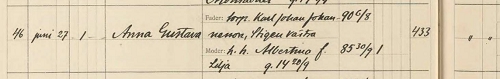 Fader: torp. Karl Johan Johan- 90 6/8
46 juni 27 1 - Anna Gustava nsson, Stigen västra 433 " "
Moder: h. h. Albertina f. 85 30/9 1
Lilja g. 14 20/9